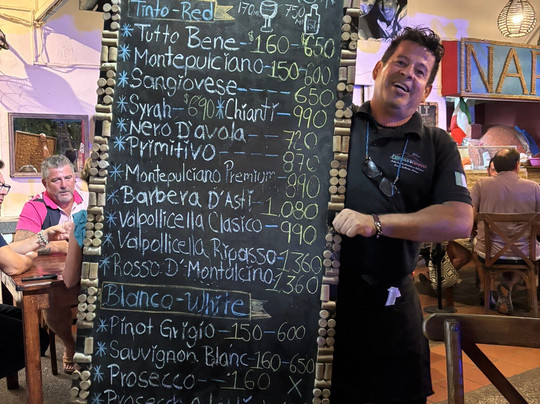 Tinto-Red 150ml 750ml
*Tutto Bene - $160 - $650
*Montepulciano - 150-600
*Sangiovese --- 650
*Syrah - $690 *Chianti - 990
*Nero D'avola --- 720
*Primitivo --- 870
*Montepulciano Premium - 890
*Barbera D'Asti - 1,080
*Valpollicella Clasico - 990
*Valpollicella Ripasso - 1360
*Rosso D'Montalcino - 1,360
Blanco-White
*Pinot Grigio - 150-600
*Sauvignon Blanc - 160-650
*Prosecco --- 160 X
170 $
NA